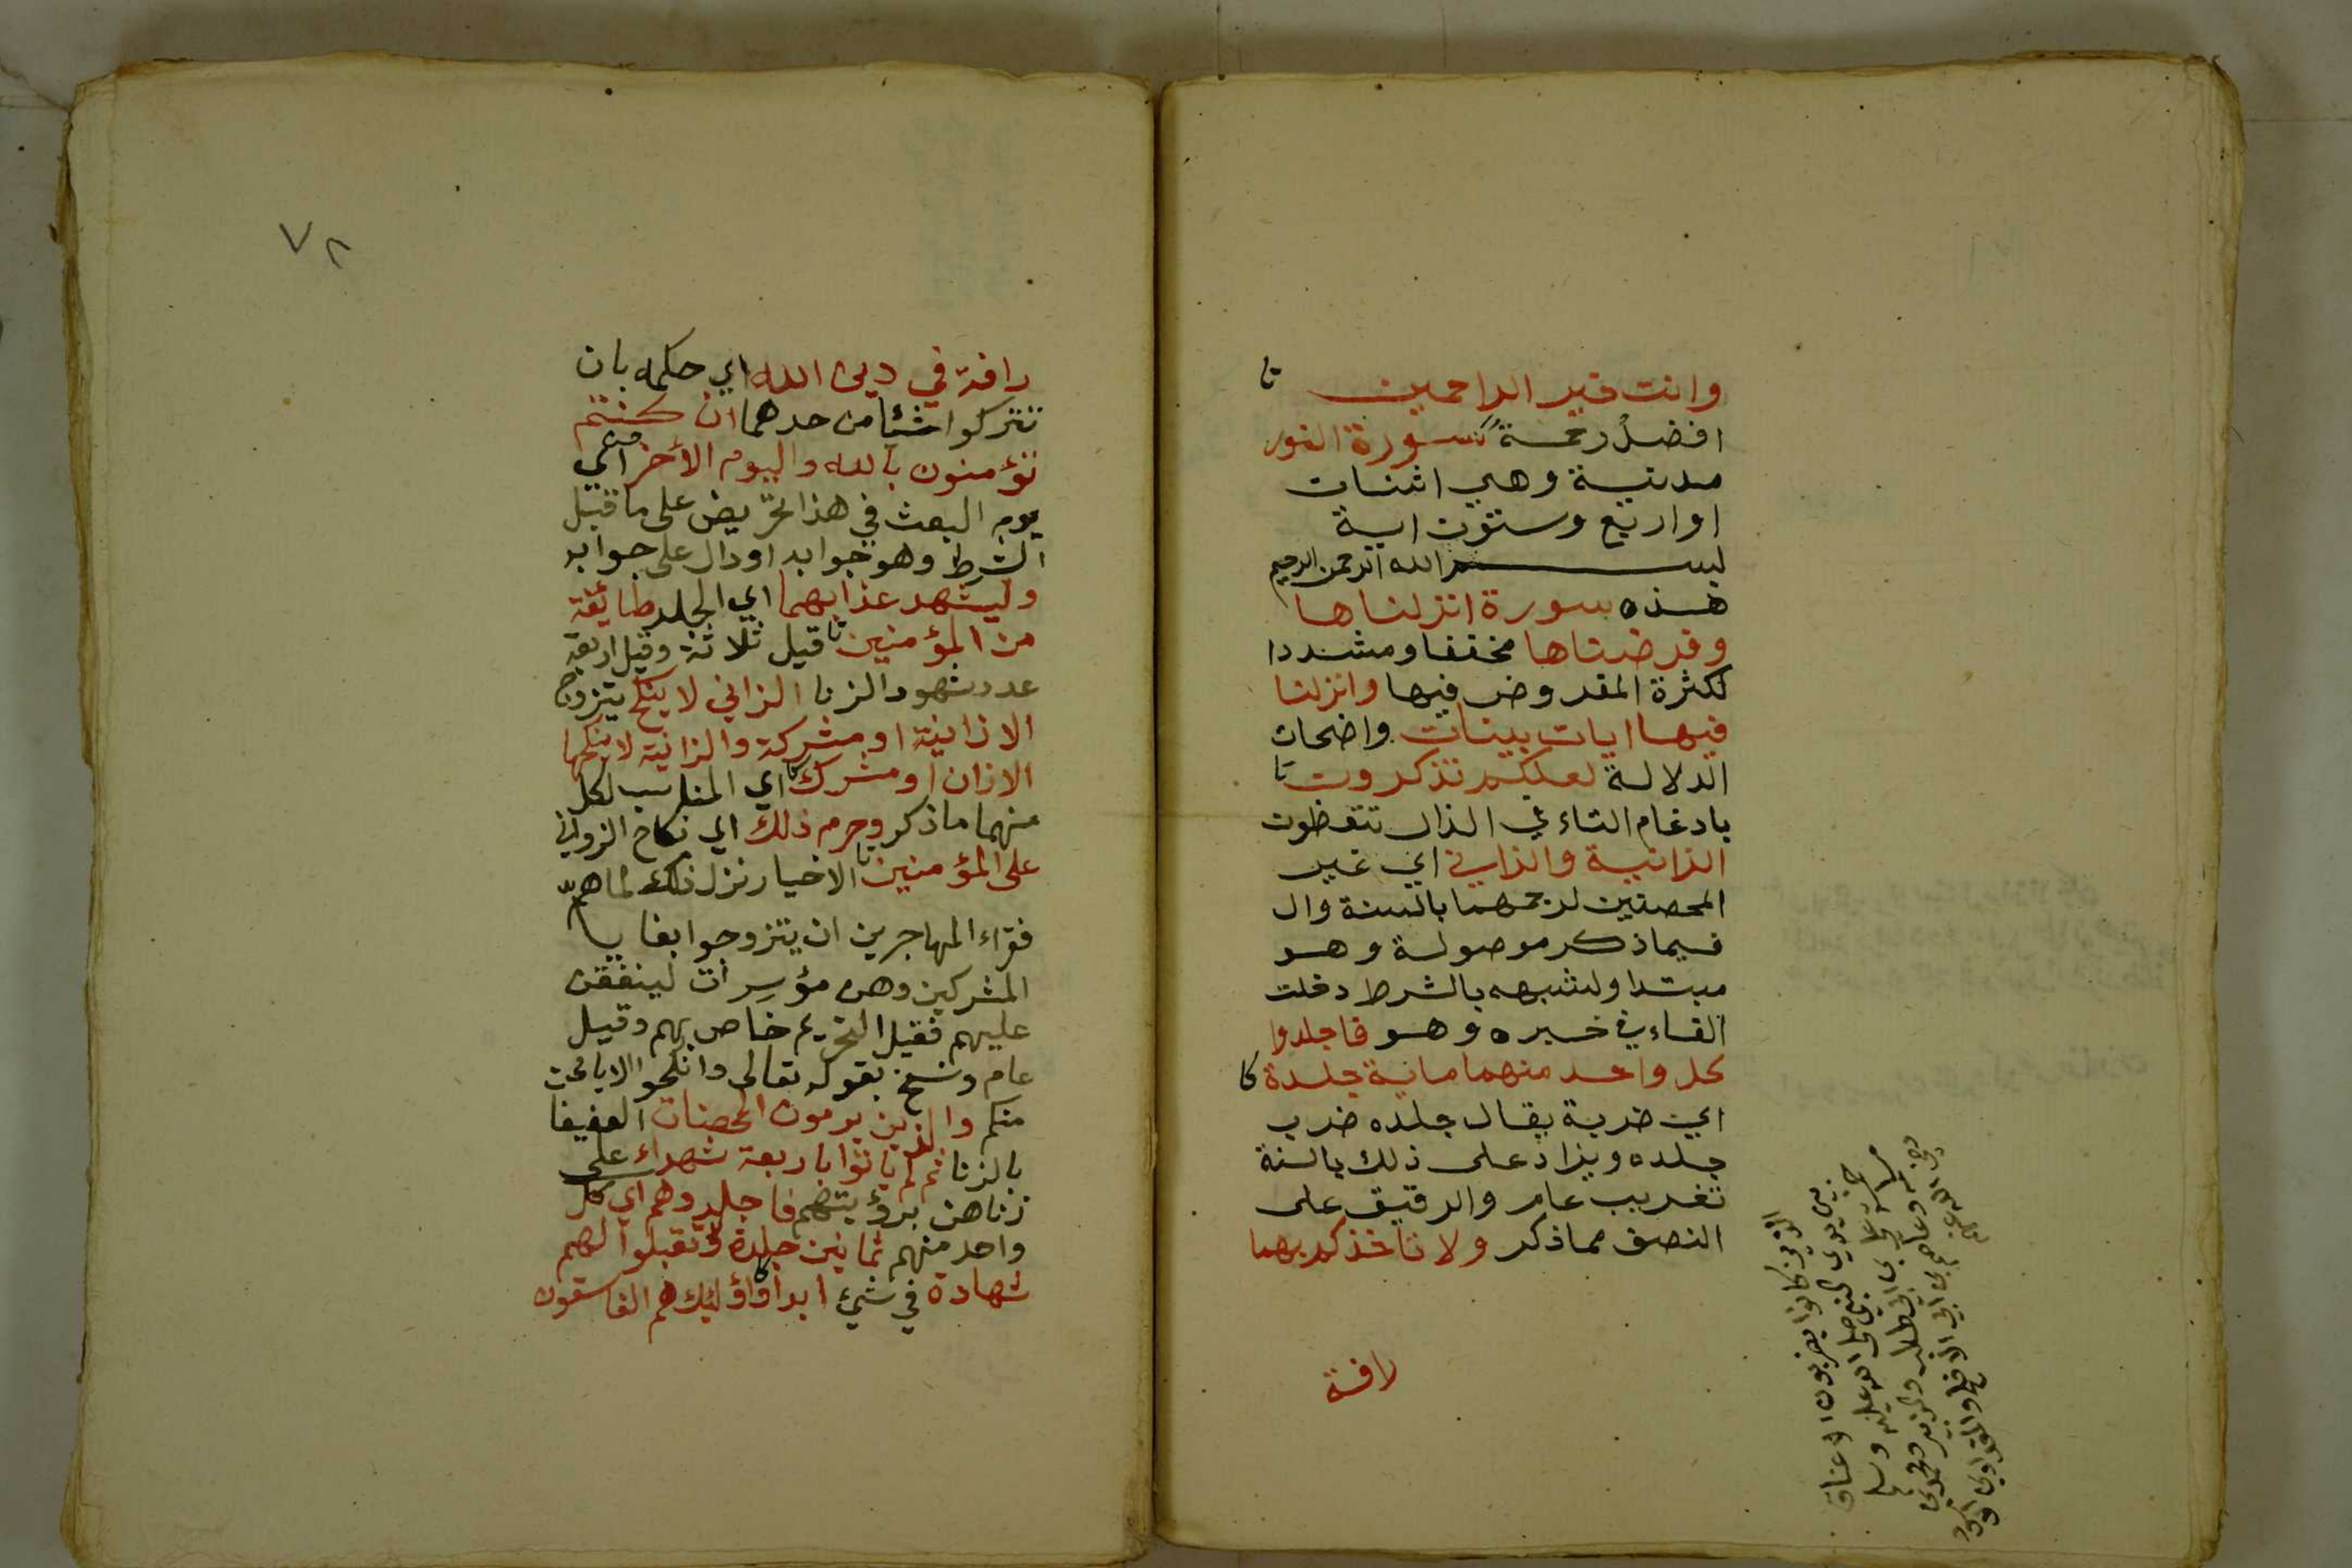 وانت خير الراحمين
افضل رحمة سورة النور
مدنية وهي اثنات
او اربع وستون اية
بسم الله الرحمن الرحيم
هذه سورة انزلناها
وفرضناها مخففا ومشددا
لكثرة المفروض فيها وانزلنا
فيها ايات بينات واضحات
الدلالة لعلكم تذكرون
بادغام التاء في الذال تتعظون
الزانية والزاني اي غير
المحصنين لرجمهما بالسنة وال
فيما ذكر موصولة وهو
مبتدا ولشبهه بالشرط دخلت
الفاء في خبره وهو فاجلدوا
كل واحد منهما ماية جلدة
اي ضربة يقال جلده ضرب
جلده ويزاد على ذلك بالسنة
تغريب عام والرقيق على
النصف مما ذكر ولا تاخذكم بهما
رافة
الذين كانوا يضربون الاعناق
بين يدي النبي صلى الله عليه وسلم
علي بن ابي طالب والزبير ومحمد بن
وعاصم بن ابي الافلح والمقداد بن
رضي الله عنهم
٧٢
رافة في دين الله اي حكمه بان
تتركوا شئا من حدهما ان كنتم
تؤمنون بالله واليوم الأخر اي
يوم البعث في هذا تحريض على ما قبل
الشرط وهو جوابه او دال على جوابه
وليشهد عذابهما اي الجلد طايفة
من المؤمنين قيل ثلاثة وقيل اربعة
عدد شهود الزنا الزاني لا ينكح يتزوج
الا زانية او مشركة والزانية لا ينكحها
الا زان او مشرك اي المناسب لكل
منهما ما ذكر وحرم ذلك اي نكاح الزواني
على المؤمنين الاخيار نزل ذلك لما همّ
فقراء المهاجرين ان يتزوجوا بغايا
المشركين وهن مؤسرات لينفقن
عليهم فقيل التحريم خاص بهم وقيل
عام ونسخ بقوله تعالى وانكحوا الايامى
منكم والذين يرمون المحصنات العفيفا
بالزنا ثم لم ياتوا باربعة شهداء على
زناهن برؤيتهم فاجلدوهم اي كل
واحد منهم ثمانين جلدة ولا تقبلوا لهم
شهادة في شيئ ابدا واؤليك هم الفاسقون